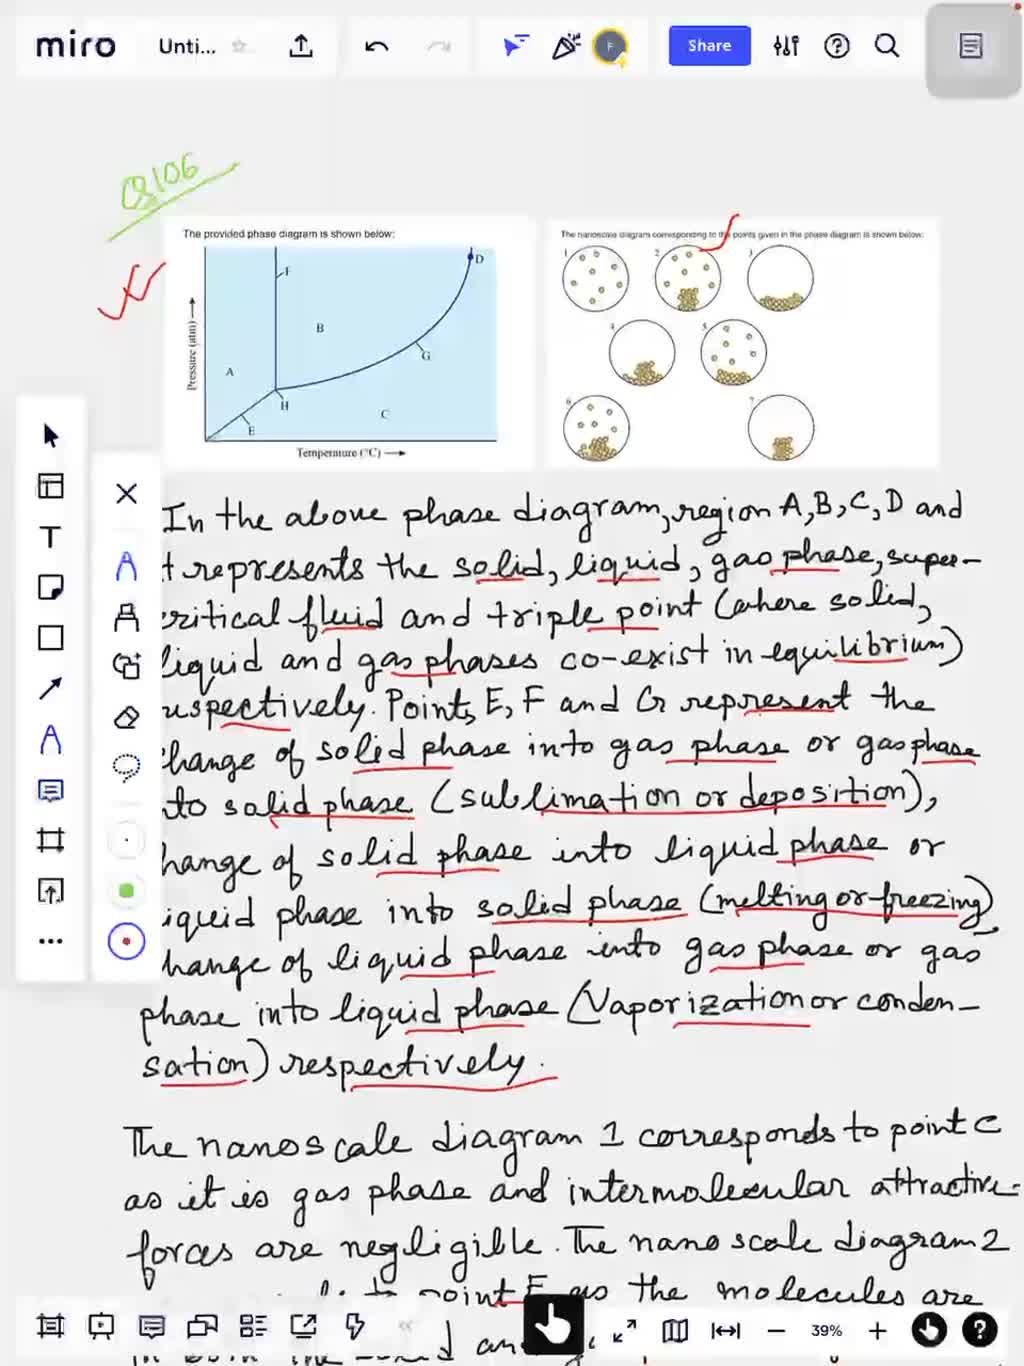 miro
Unti...
Share
Q106
The provided phase diagram is shown below:
F
D
B
G
A
H
C
E
Pressure (atm)
Temperature (°C)
The nanoscale diagram corresponding to the points given in the phase diagram is shown below:
1
2
3
4
5
6
7
In the above phase diagram, region A, B, C, D and
represents the solid, liquid, gas phase, super-
critical fluid and triple point (where solid,
liquid and gas phases co-exist in equilibrium)
respectively. Points E, F and G represent the
hange of solid phase into gas phase or gas phase
nto solid phase (sublimation or deposition),
hange of solid phase into liquid phase or
iquid phase into solid phase (melting or freezing)
hange of liquid phase into gas phase or gas
phase into liquid phase (Vaporization or conden-
sation) respectively.
The nanoscale diagram 1 corresponds to point C
as it is gas phase and intermolecular attractive
forces are negligible. The nanoscale diagram 2
point E as the molecules are
39%
in both the solid and